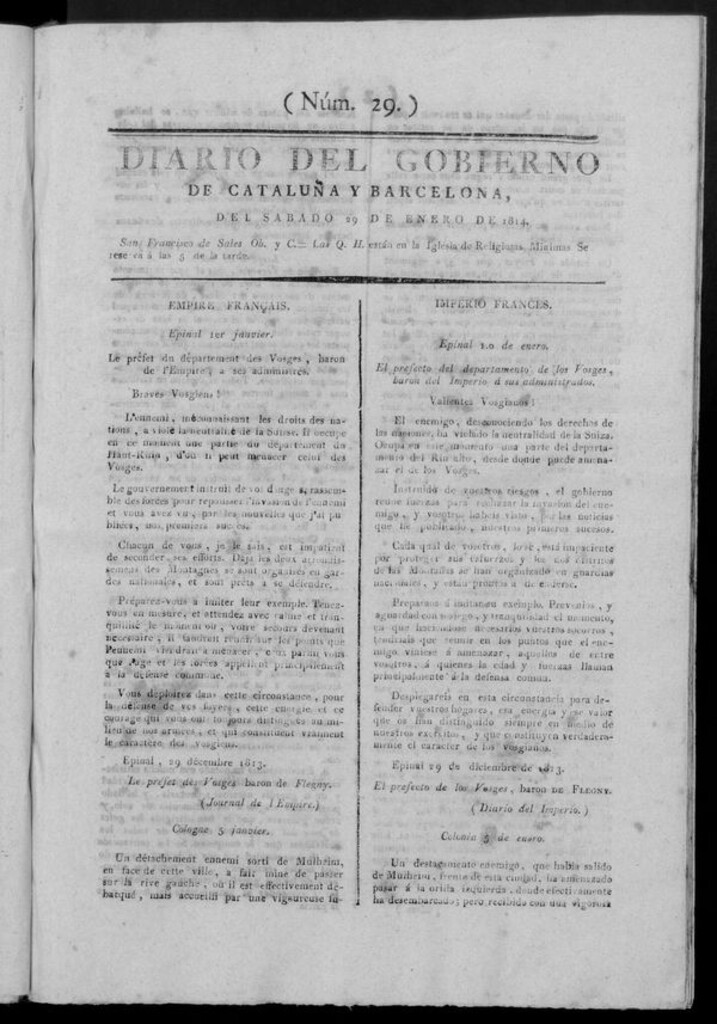 (Núm. 29.)
DIARIO DEL GOBIERNO
DE CATALUÑA Y BARCELONA,
DEL SABADO 29 DE ENERO DE 1814.
San Francisco de Sales Ob. y C.= Las Q. H. están en la Iglesia de Religiosas Mínimas Se
reserva á las 5 de la tarde.
EMPIRE FRANÇAIS.
Epinal 1er janvier.
Le préfet du département des Vosges, baron
de l'Empire, a ses administrés.
Braves Vosgiens!
L'ennemi, méconnaissant les droits des na-
tions, a violé la neutralité de la Suisse. Il occupe
en ce moment une partie du département du
Haut-Rhin, d'où il peut menacer celui des
Vosges.
Le gouvernement instruit de vos dangers, rassem-
ble des forces pour repousser l'invasion de l'ennemi
et vous avez vu, par les nouvelles que j'ai pu
bliées, nos premiers succès.
Chacun de vous, je le sais, est impatient
de seconder ses efforts. Déjà les deux arrondis-
sements des Montagnes se sont organisés en gar-
des nationales, et sont prêts à se défendre.
Préparez-vous à imiter leur exemple. Tenez-
vous en mesure, et attendez avec calme et tran-
quilité le moment où, votre secours devenant
nécessaire, il faudrait réunir sur les points que
l'ennemi viendrait à menacer, ceux parmi vous
que l'âge et les forces appellent principalement
à la défense commune.
Vous déploirez dans cette circonstance, pour
la défense de vos foyers, cette énergie et ce
courage qui vous ont toujours distingués au mi-
lieu de nos armées, et qui constituent vraiment
le caractère des Vosgiens.
Epinal, 29 décembre 1813.
Le préfet des Vosges baron de Flegny.
(Journal de l'Empire.)
Cologne 5 janvier.
Un détachement ennemi sorti de Mulheim,
en face de cette ville, a fait mine de passer
sur la rive gauche, où il est effectivement dé-
barqué, mais accueilli par une vigoureuse fu-
IMPERIO FRANCES.
Epinal 1.o de enero.
El prefecto del departamento de los Vosges,
baron del Imperio á sus administrados.
Valientes Vosgianos!
El enemigo, desconociendo los derechos de
las naciones, ha violado la neutralidad de la Suiza.
Ocupa en este momento una parte del departa-
mento del Rin alto, desde donde puede amena-
zar el de los Vosges.
Instruido de vuestros riesgos, el gobierno
reune fuerzas para rechazar la invasion del ene-
migo, y vosotros habeis visto, por las noticias
que he publicado, nuestros primeros sucesos.
Cada qual de vosotros, lo sé, está impaciente
por proteger sus esfuerzos y los dos distritos
de las Montañas se han organizado en guardias
nacionales, y estan prontos á defenderse.
Preparaos á imitar su exemplo. Preveníos, y
aguardad con sosiego, y tranquilidad el momento,
en que haciéndose necesarios vuestros socorros,
tendriais que reunir en los puntos que el ene-
migo viniese á amenazar, aquellos de entre
vosotros, á quienes la edad y fuerzas llaman
principalmente á la defensa comun.
Desplegareis en esta circunstancia para de-
fender vuestros hogares, esa energia y ese valor
que os han distinguido siempre en medio de
nuestros exércitos, y que constituyen verdadera-
mente el caracter de los Vosgianos.
Epinal 29 de diciembre de 1813.
El prefecto de los Vosges, BARON DE FLEGNY.
(Diario del Imperio.)
Colonia 5 de enero.
Un destacamento enemigo, que habia salido
de Mulheim, frente de esta ciudad, ha amenazado
pasar á la orilla izquierda, donde efectivamente
ha desembarcado; pero recibido con una vigorosa